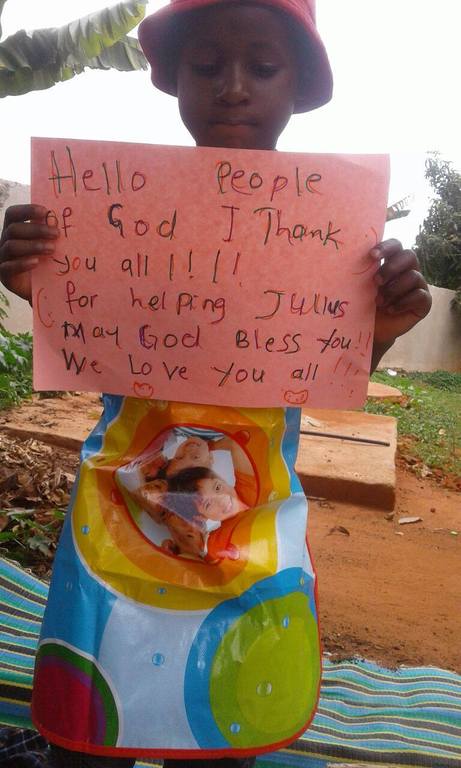 Hello People
of God I Thank
you all !!!!
for helping Julius
May God Bless You!!
We Love You all !!!